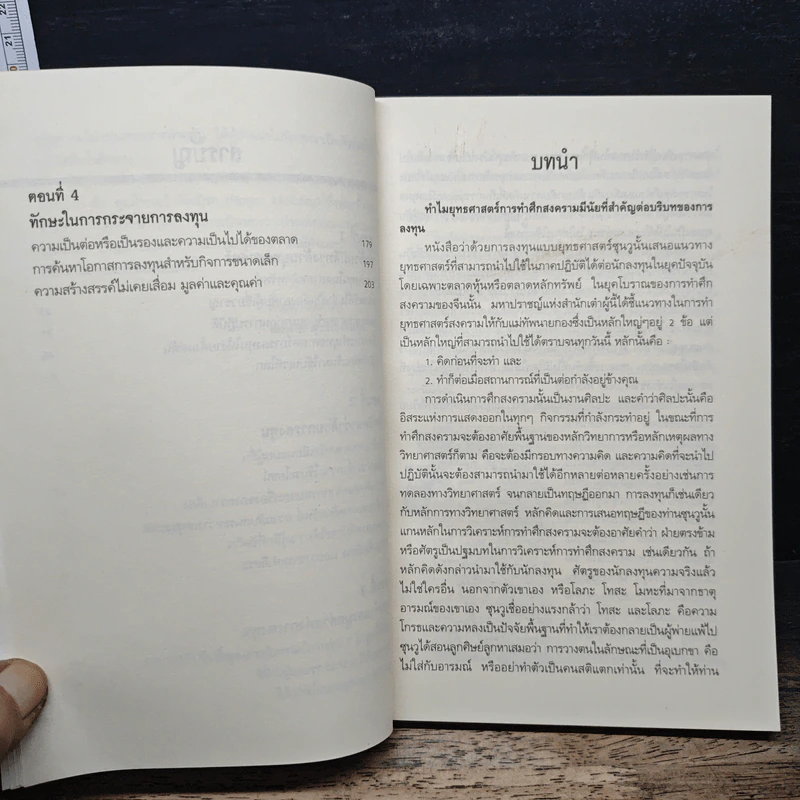 22
21
20
ตอนที่ 4
ทักษะในการกระจายการลงทุน
ความเป็นต่อหรือเป็นรองและความเป็นไปได้ของตลาด 179
การค้นหาโอกาสการลงทุนสำหรับกิจการขนาดเล็ก 197
ความสร้างสรรค์ไม่เคยเสื่อม มูลค่าและคุณค่า 203
บทนำ
ทำไมยุทธศาสตร์การทำศึกสงครามมีนัยที่สำคัญต่อบริบทของการ
ลงทุน
หนังสือว่าด้วยการลงทุนแบบยุทธศาสตร์ซุนวูนั้นเสนอแนวทาง
ยุทธศาสตร์ที่สามารถนำไปใช้ในภาคปฏิบัติได้ต่อนักลงทุนในยุคปัจจุบัน
โดยเฉพาะตลาดหุ้นหรือตลาดหลักทรัพย์ ในยุคโบราณของการทำศึก
สงครามของจีนนั้น มหาปราชญ์แห่งสำนักเต๋าผู้นี้ได้ชี้แนวทางในการทำ
ยุทธศาสตร์สงครามให้กับแม่ทัพนายกองซึ่งเป็นหลักใหญ่ๆอยู่ 2 ข้อ แต่
เป็นหลักใหญ่ที่สามารถนำไปใช้ได้ตราบจนทุกวันนี้ หลักนั้นคือ :
1. คิดก่อนที่จะทำ และ
2. ทำก็ต่อเมื่อสถานการณ์ที่เป็นต่อกำลังอยู่ข้างคุณ
การดำเนินการศึกสงครามนั้นเป็นงานศิลปะ และคำว่าศิลปะนั้นคือ
อิสระแห่งการแสดงออกในทุกๆ กิจกรรมที่กำลังกระทำอยู่ ในขณะที่การ
ทำศึกสงครามจะต้องอาศัยพื้นฐานของหลักวิทยาการหรือหลักเหตุผลทาง
วิทยาศาสตร์ก็ตาม คือจะต้องมีกรอบทางความคิด และความคิดที่จะนำไป
ปฏิบัตินั้นจะต้องสามารถนำมาใช้ได้อีกหลายต่อหลายครั้งอย่างเช่นการ
ทดลองทางวิทยาศาสตร์ จนกลายเป็นทฤษฎีออกมา การลงทุนก็เช่นเดียว
กับหลักการทางวิทยาศาสตร์ หลักคิดและการเสนอทฤษฎีของท่านซุนวูนั้น
แกนหลักในการวิเคราะห์การทำศึกสงครามจะต้องอาศัยคำว่า ฝ่ายตรงข้าม
หรือศัตรูเป็นปฐมบทในการวิเคราะห์การทำศึกสงคราม เช่นเดียวกัน ถ้า
หลักคิดดังกล่าวนำมาใช้กับนักลงทุน ศัตรูของนักลงทุนความจริงแล้ว
ไม่ใช่ใครอื่น นอกจากตัวเขาเอง หรือโลภะ โทสะ โมหะที่มาจากธาตุ
อารมณ์ของเขาเอง ซุนวูเชื่ออย่างแรงกล้าว่า โทสะ และโลภะ คือความ
โกรธและความหลงเป็นปัจจัยพื้นฐานที่ทำให้เราต้องกลายเป็นผู้พ่ายแพ้ไป
ซุนวูได้สอนลูกศิษย์ลูกหาเสมอว่า การวางตนในลักษณะที่เป็นอุเบกขา คือ
ไม่ใส่กับอารมณ์ หรืออย่าทำตัวเป็นคนสติแตกเท่านั้น ที่จะทำให้ท่าน